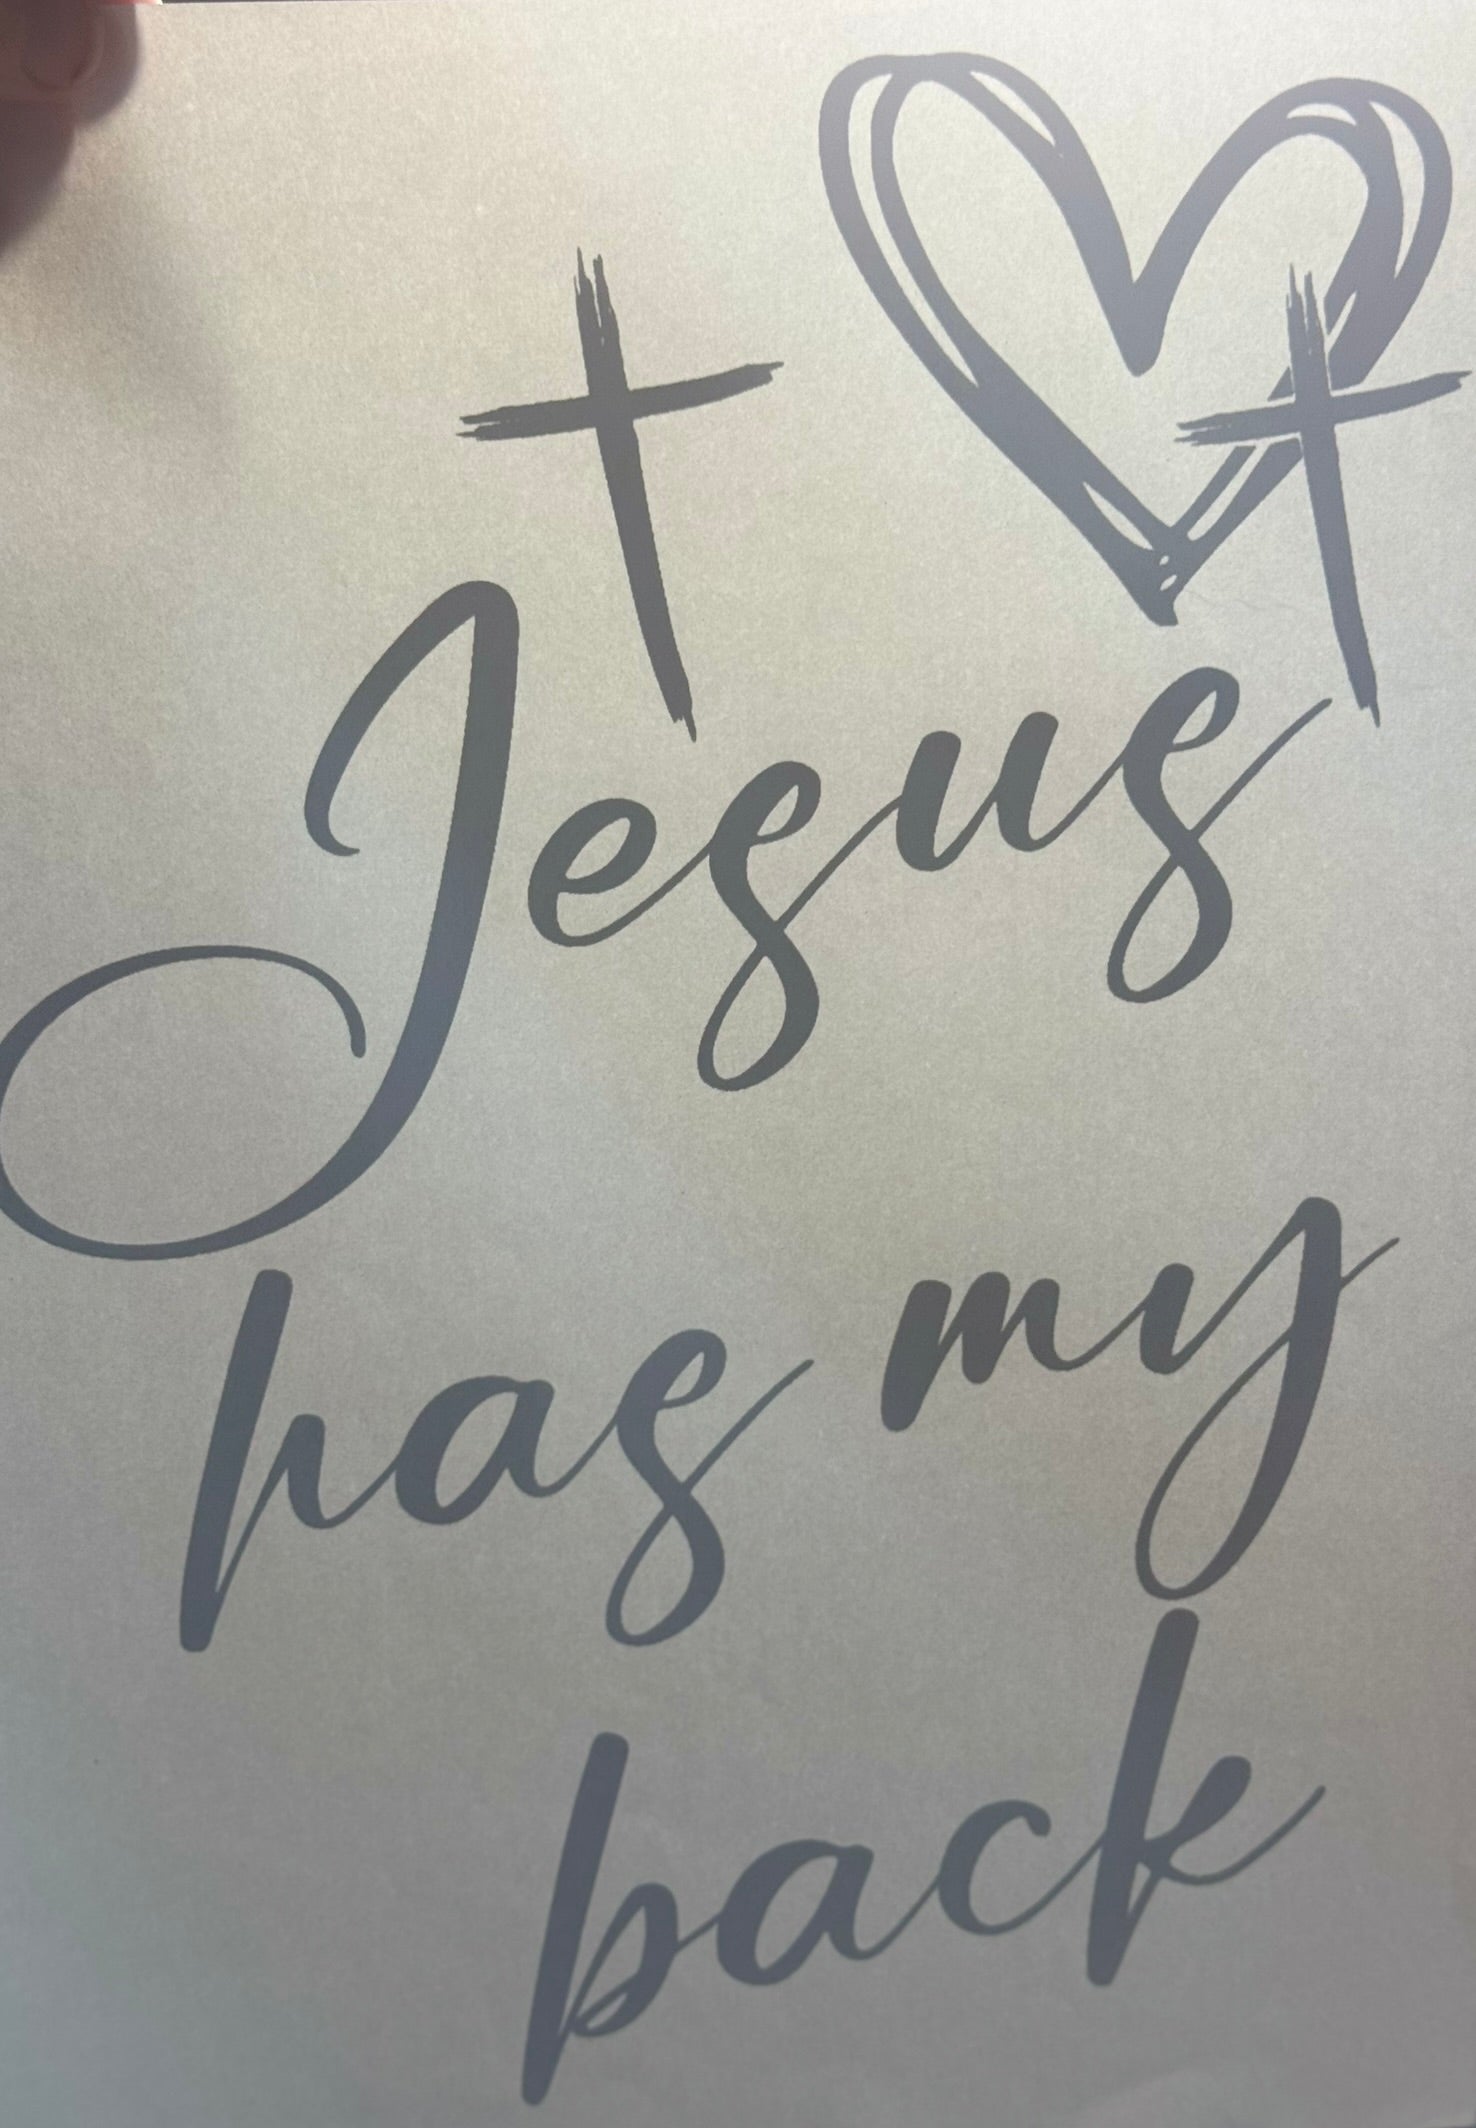 Jesus
has my
back